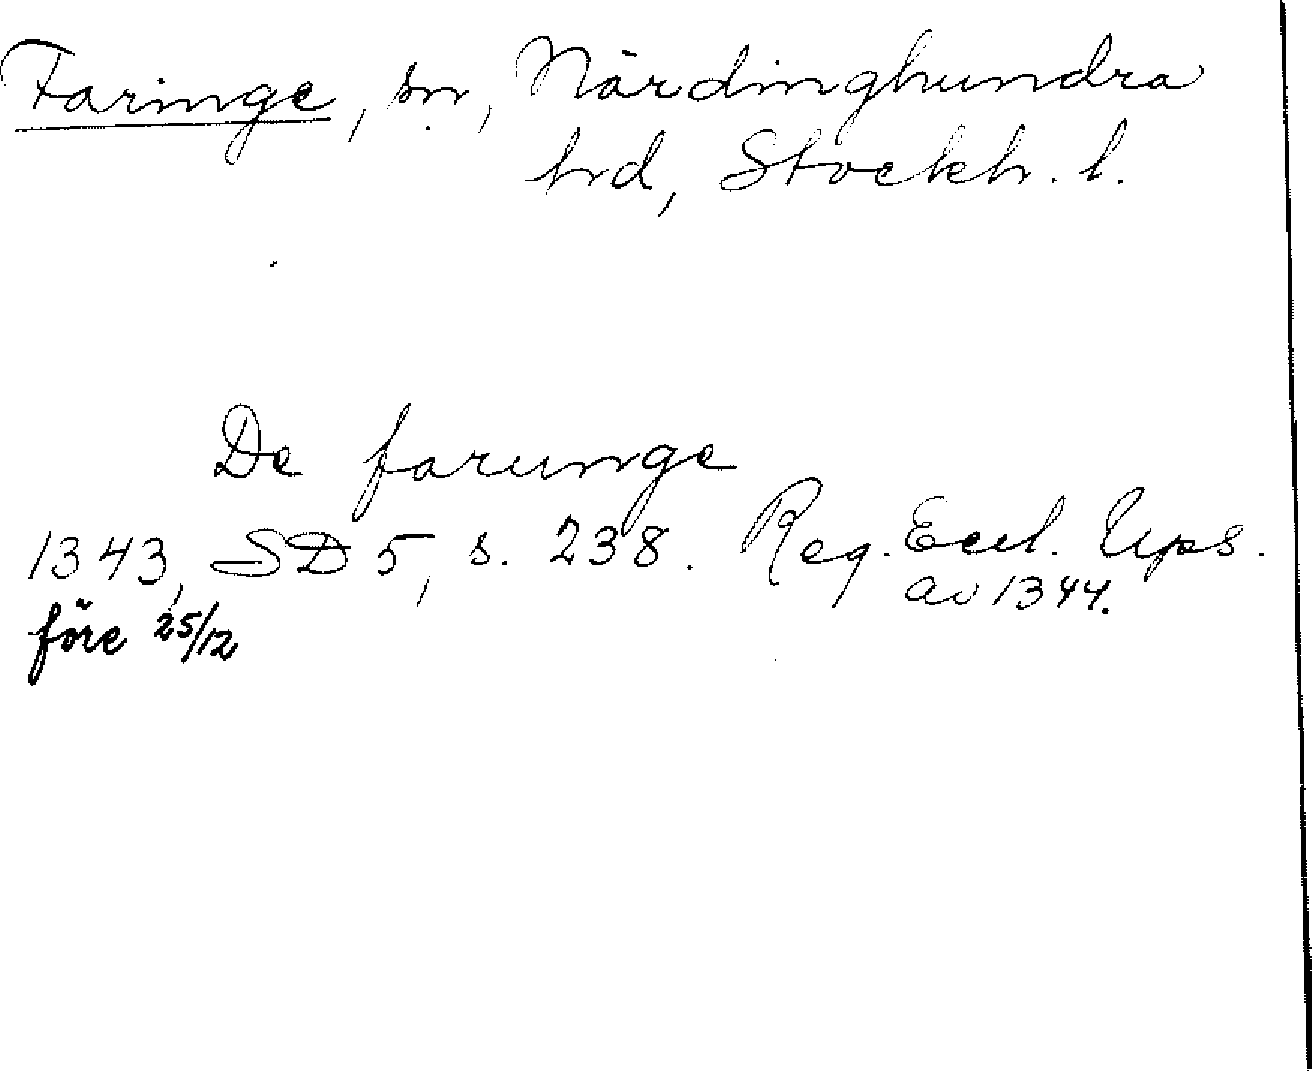 Faringe, sn, Närdinghundra
hrd, Stockh. l.
De farunge
1343, SD 5, s. 238. Reg. Eccl. Ups.
av 1344.
före 25/12